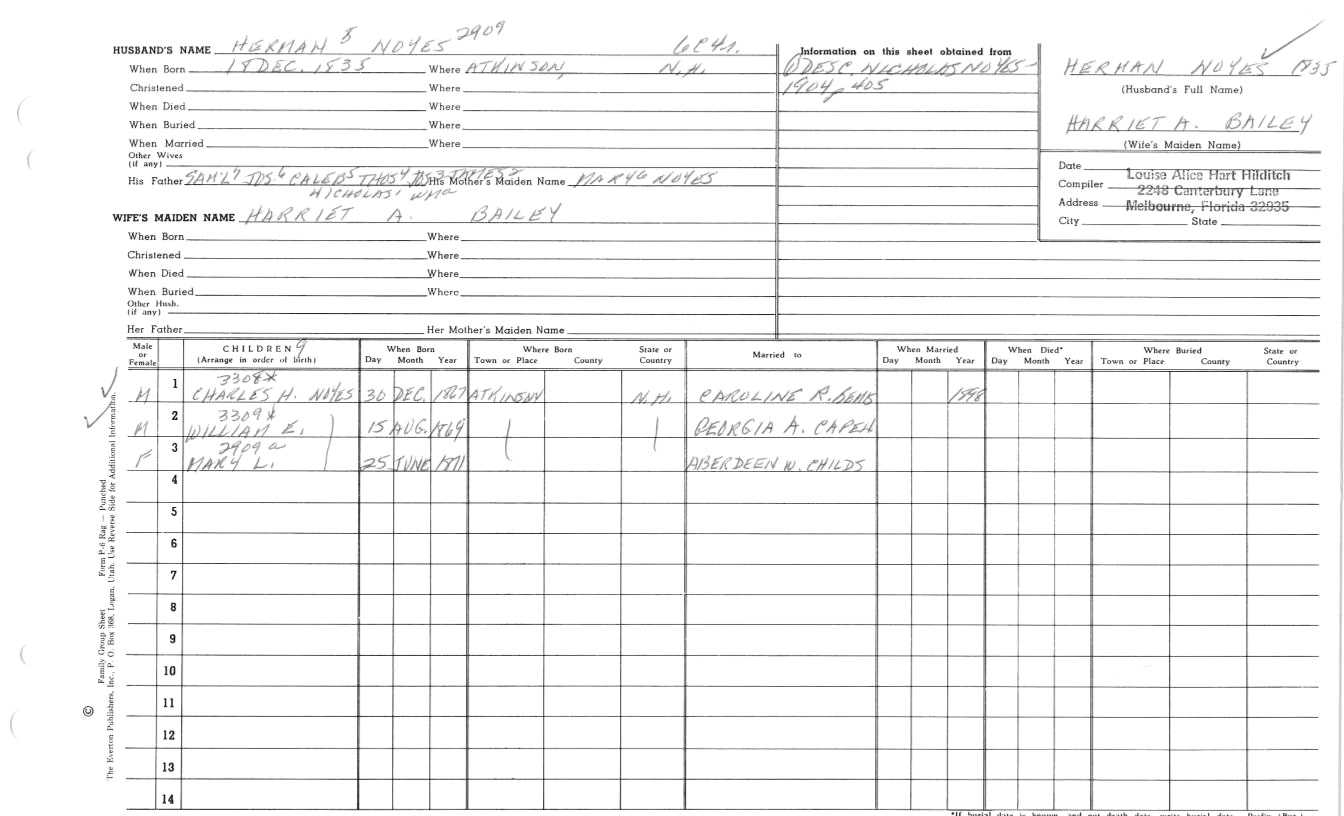 HUSBAND'S NAME HERMAN 8 NOYES 2909
Information on this sheet obtained from
When Born 18 DEC. 1835 Where ATKINSON, N.H.
① DESC. NICHOLAS NOYES-
1904, 405
Christened Where
When Died Where
When Buried Where
When Married Where
Other Wives
(if any)
His Father SAM'L7 JOS6 CALEB5 THOS4 JOS3 JAMES2 His Mother's Maiden Name MARY6 NOYES
NICHOLAS1 WMa
HERMAN NOYES 1835
(Husband's Full Name)
HARRIET A. BAILEY
(Wife's Maiden Name)
Date
Compiler Louise Alice Hart Hilditch
Address 2248 Canterbury Lane
Melbourne, Florida 32935
City State
WIFE'S MAIDEN NAME HARRIET A. BAILEY
When Born Where
Christened Where
When Died Where
When Buried Where
Other Husb.
(if any)
Her Father Her Mother's Maiden Name
Male or Female
CHILDREN 9
(Arrange in order of birth)
When Born
Day Month Year
Where Born
Town or Place County
State or Country
Married to
When Married
Day Month Year
When Died*
Day Month Year
Where Buried
Town or Place County
State or Country
3308*
M 1 CHARLES H. NOYES 30 DEC. 1867 ATKINSON N.H. CAROLINE R. 1898
3309*
M 2 WILLIAM E. 15 AUG. 1869 GEORGIA A. CAPEN
2909 a
F 3 MARY L. 25 JUNE 1871 ABERDEEN W. CHILDS
4
5
6
7
8
9
10
11
12
13
14
© Family Group Sheet Form P-6 Rag — Punched
The Everton Publishers, Inc., P. O. Box 368, Logan, Utah. Use Reverse Side for Additional Information.
*If burial date is known and not death date, write burial date.